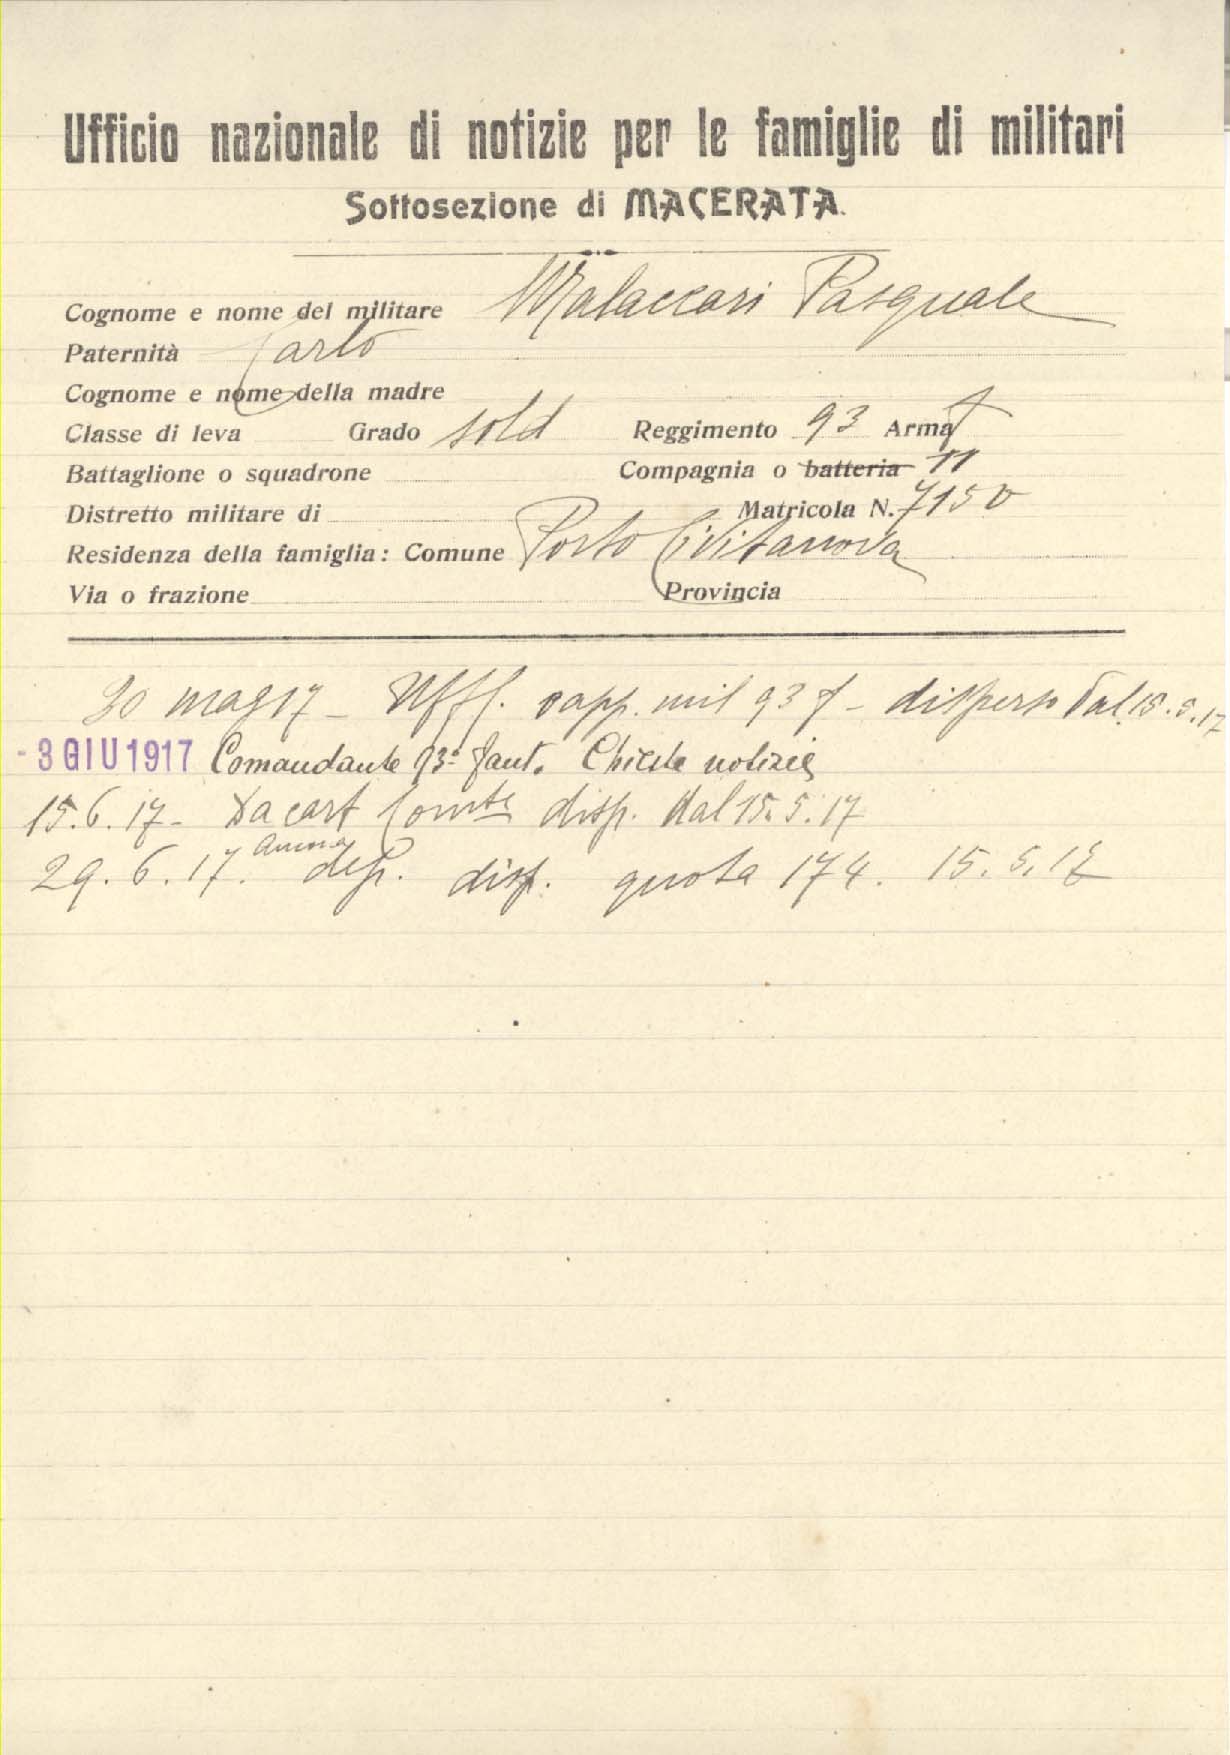 Ufficio nazionale di notizie per le famiglie di militari
Sottosezione di MACERATA.
Cognome e nome del militare Malaccari Pasquale
Paternità Carlo
Cognome e nome della madre
Classe di leva Grado sold Reggimento 93 Arma f
Battaglione o squadrone Compagnia o batteria 11
Distretto militare di Matricola N. 7150
Residenza della famiglia: Comune Porto Civitanova
Via o frazione Provincia
30 mag 17 - Uff. rapp. mil 93 f - disperso dal 15.5.17
- 3 GIU 1917 Comandante 93° fant. Chieste notizie
15.6.17 - Da cart Comte disp. dal 15.5.17
29.6.17. dep. disp. quota 174. 15.5.17